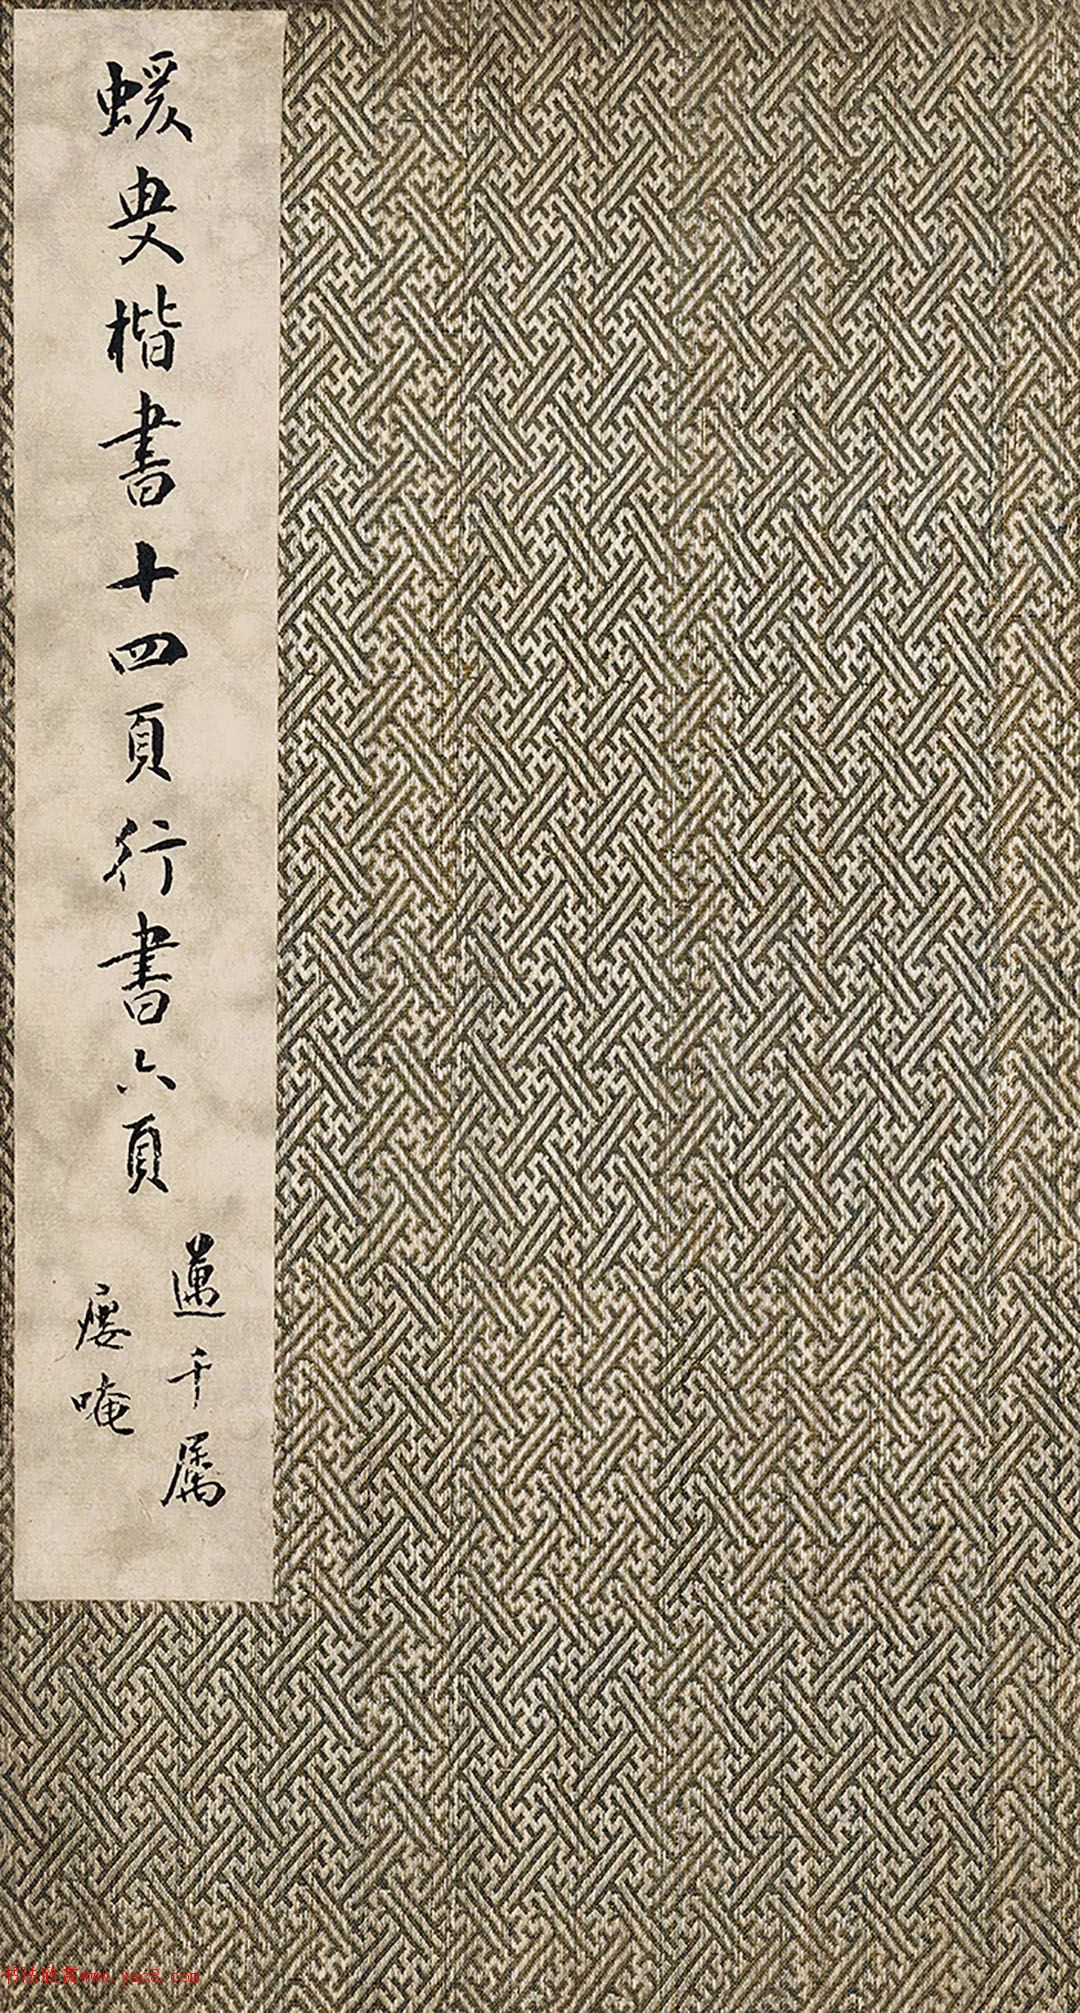 蝯叟楷書十四頁行書六頁
邁千属
癭唵
书法欣赏www.yac8.com